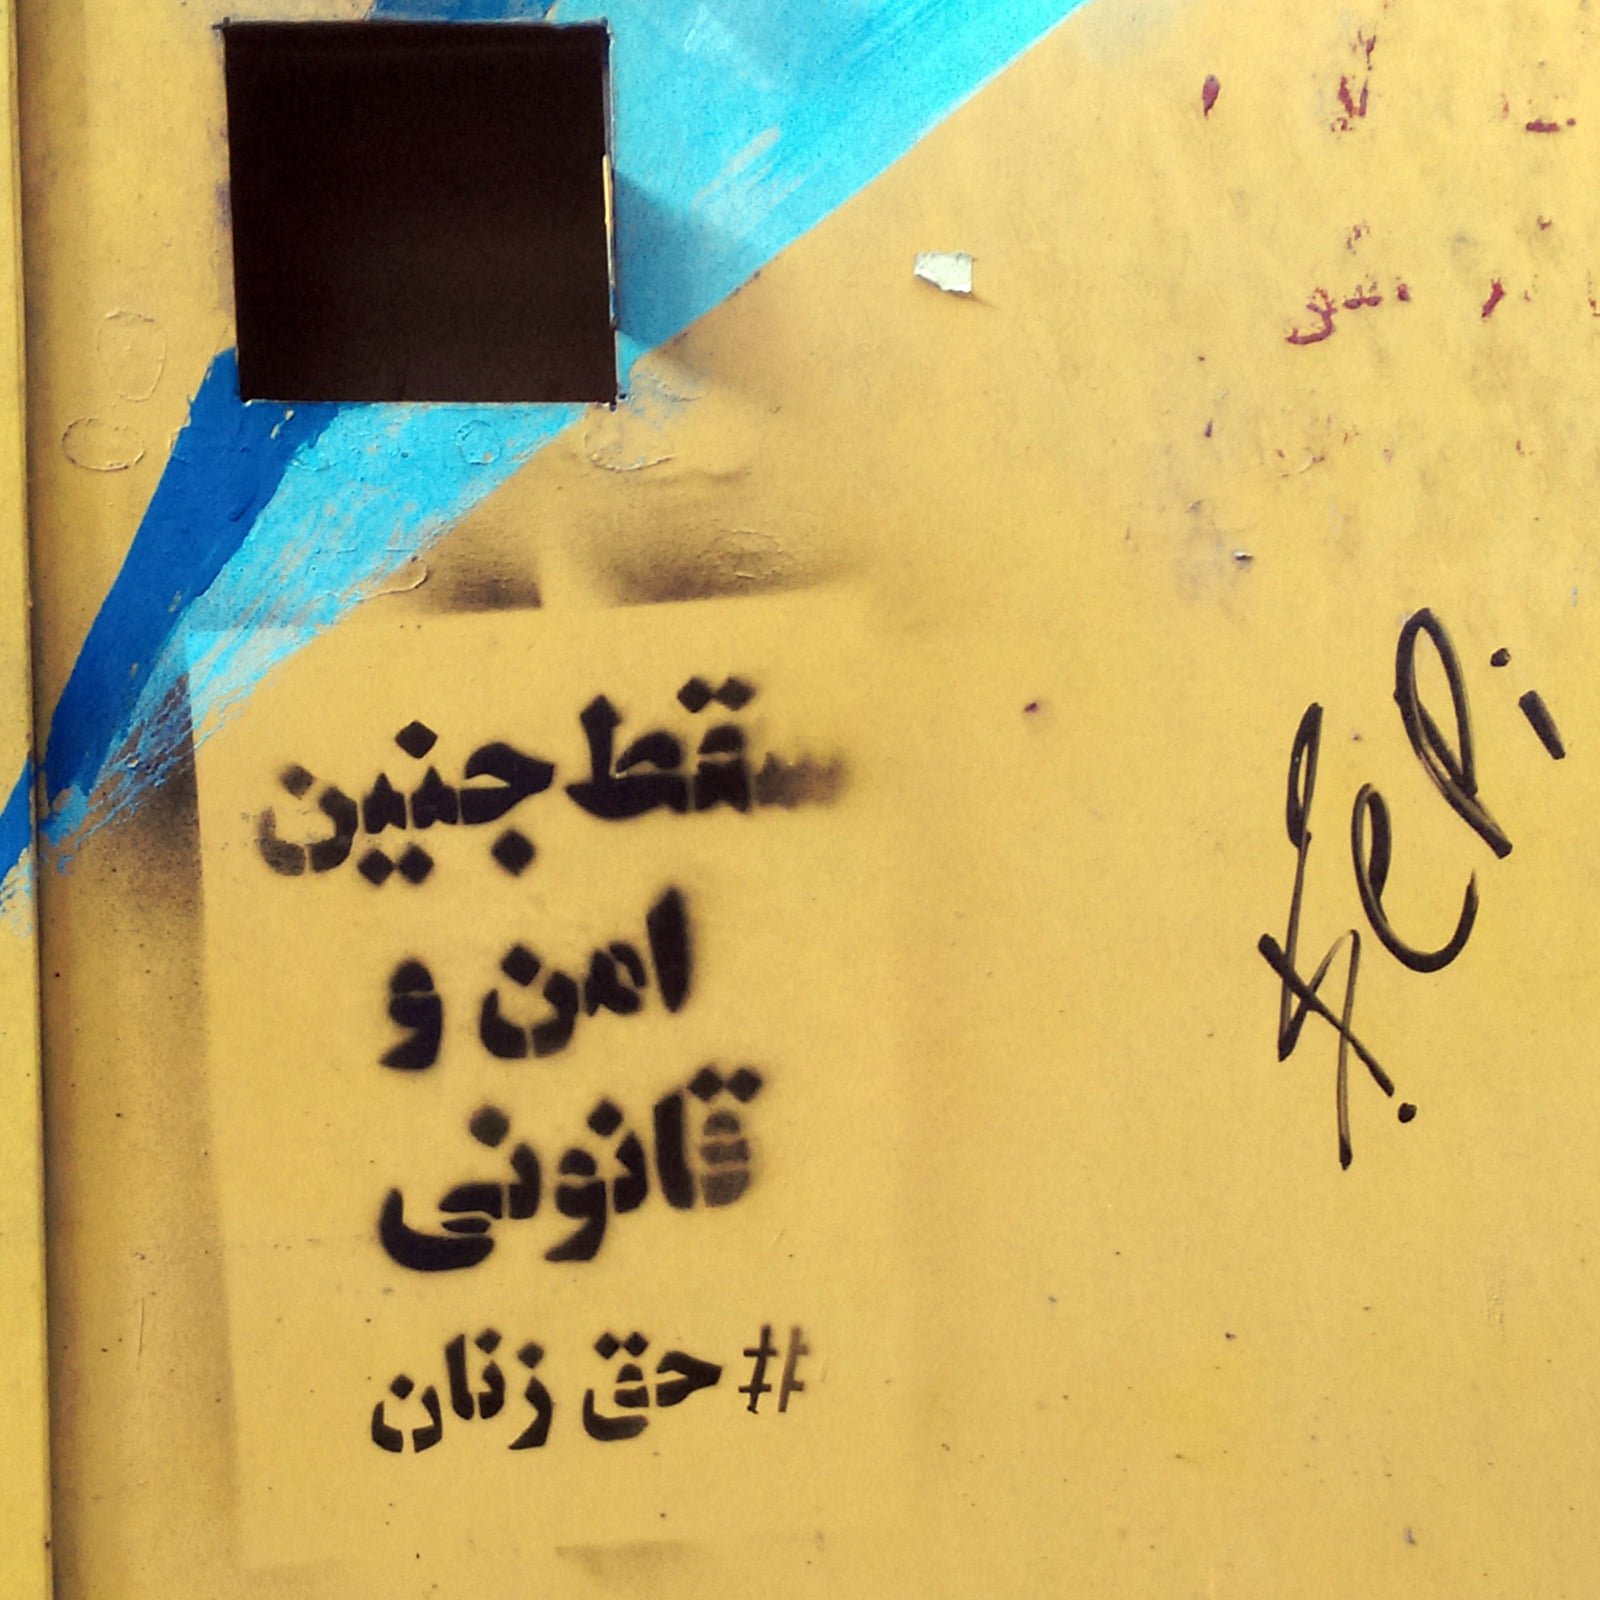 سقط جنین
امن و
قانونی
#حق زنان